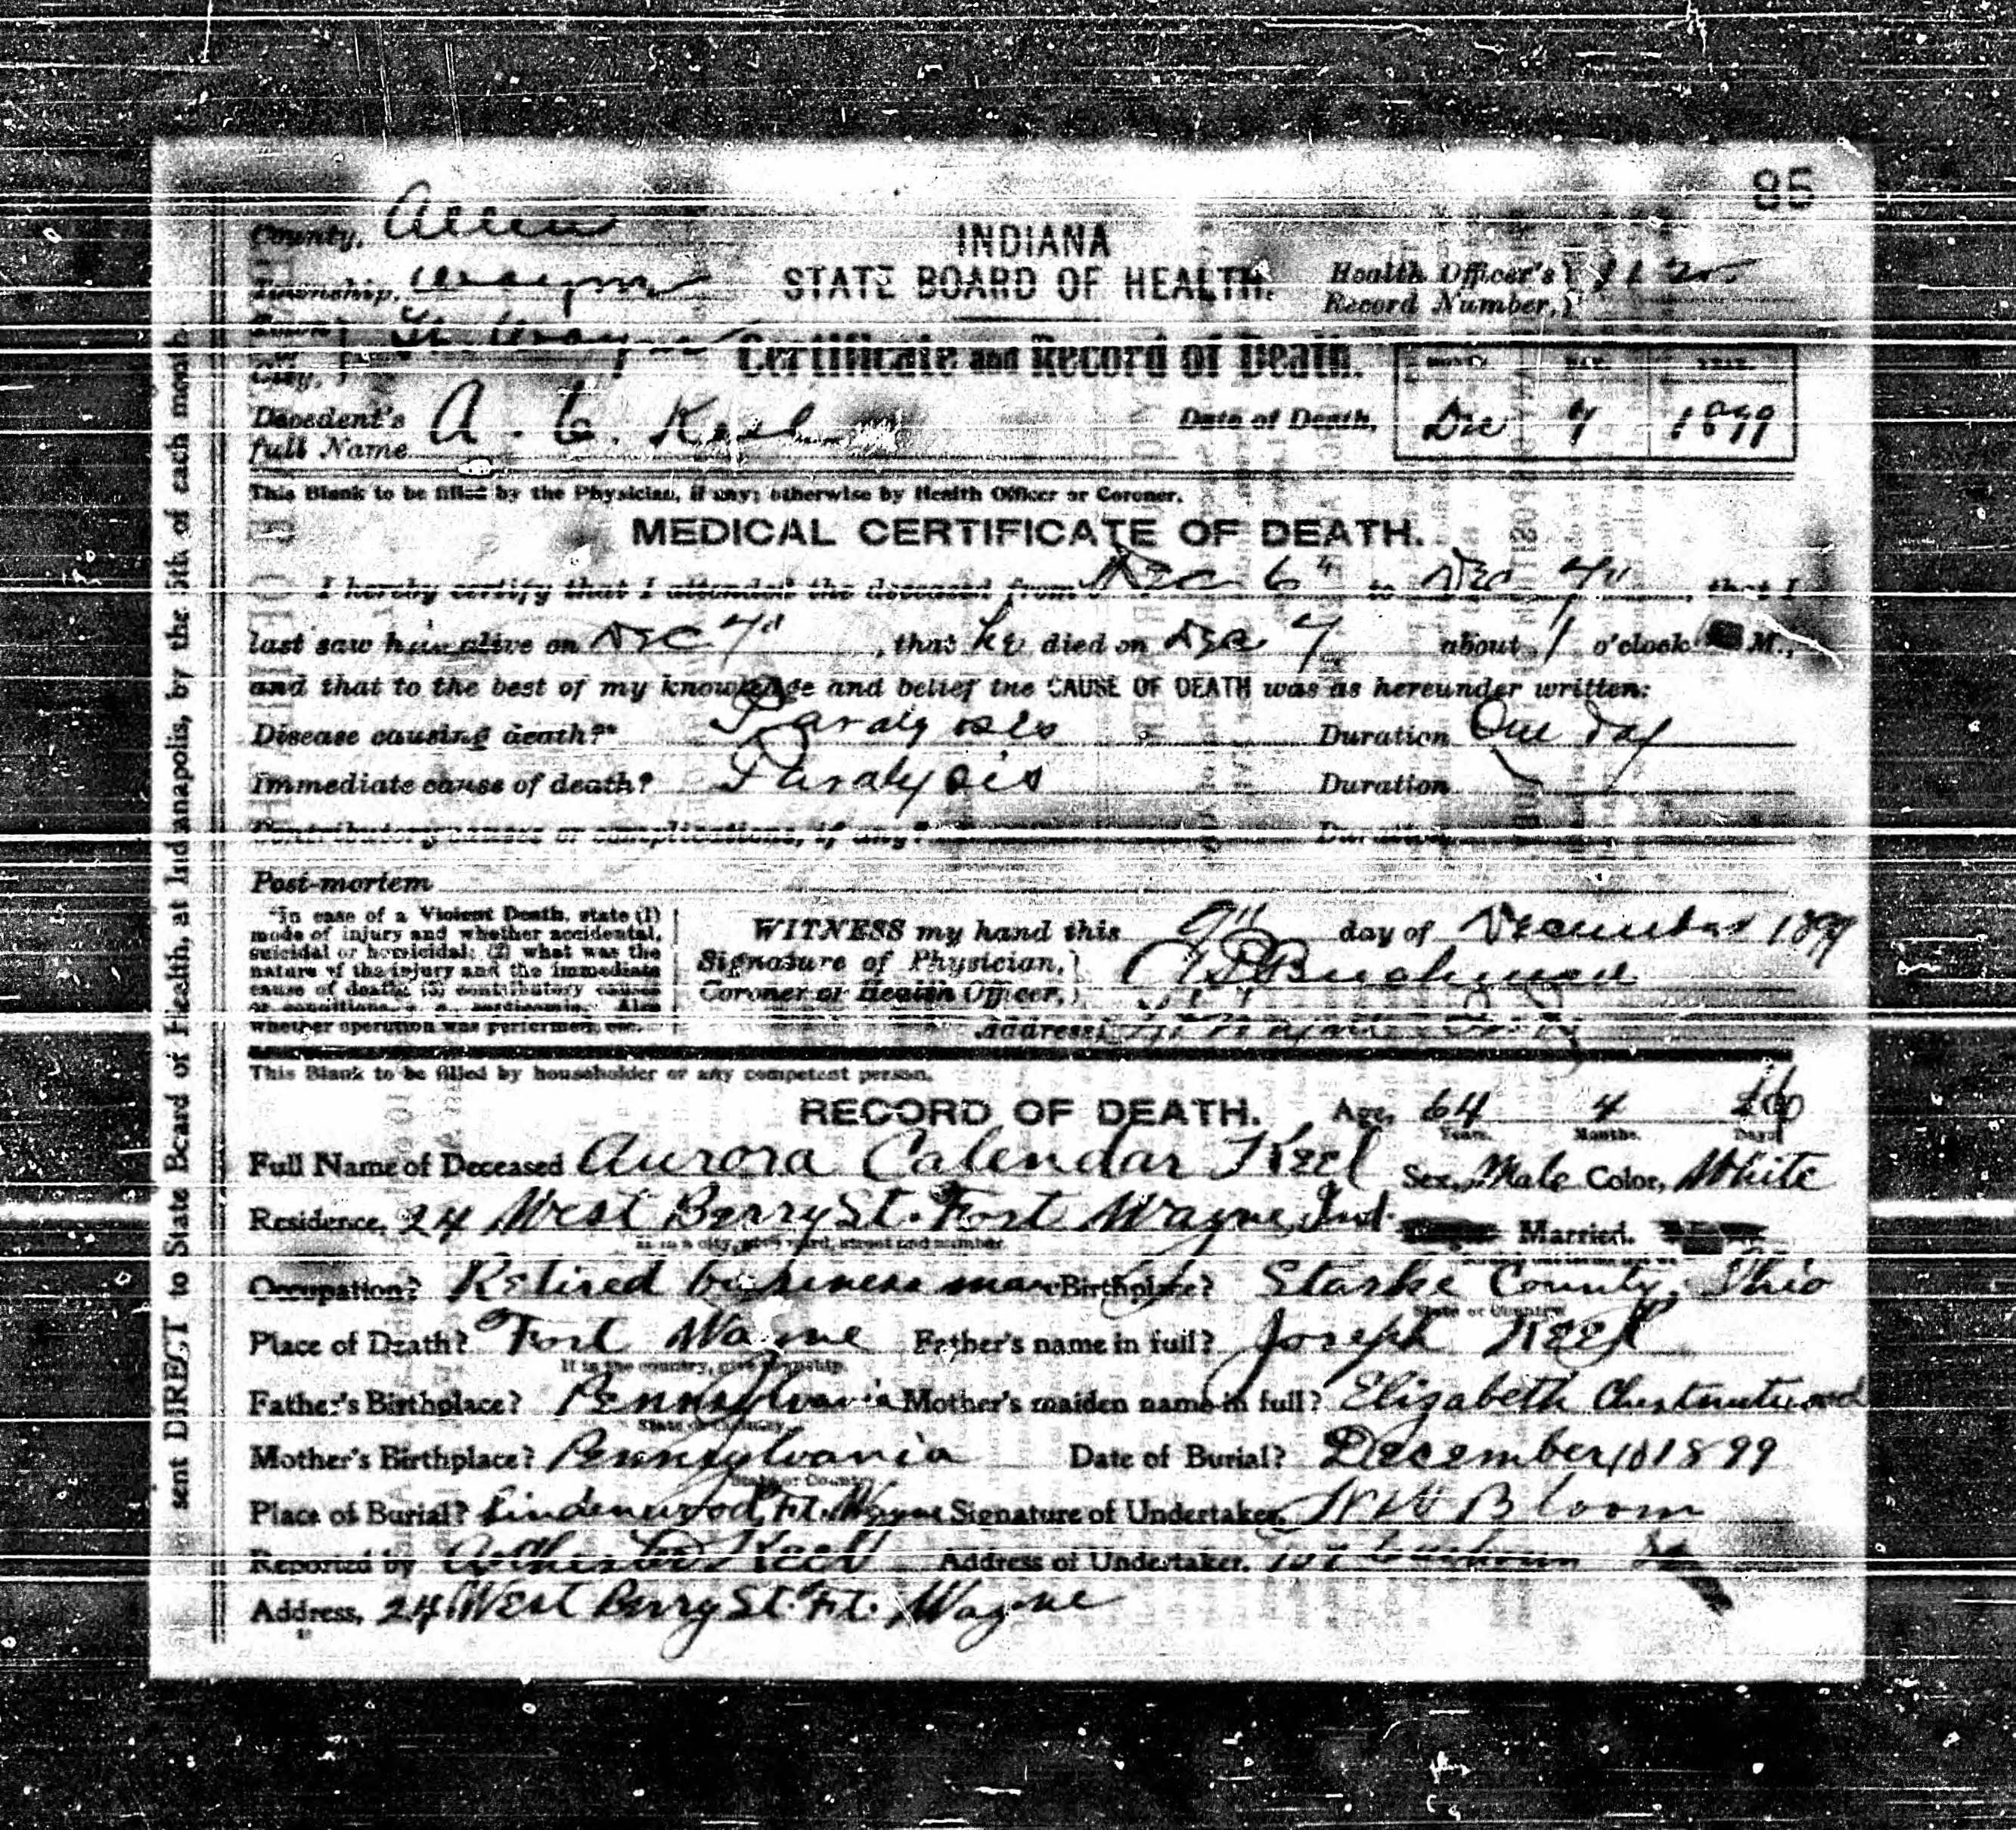 85
County, Allen
Township, Wayne
Town or City, Ft. Wayne
INDIANA
STATE BOARD OF HEALTH.
Health Officer's Record Number,
Certificate and Record of Death.
Decedent's full Name A. C. Keel
Date of Death, Dec 7 1899
This Blank to be filled by the Physician, if any; otherwise by Health Officer or Coroner.
MEDICAL CERTIFICATE OF DEATH.
I hereby certify that I attended the deceased from Dec 6" to Dec 7", that I
last saw him alive on Dec 7", that he died on Dec 7 about 1 o'clock M.,
and that to the best of my knowledge and belief the CAUSE OF DEATH was as hereunder written:
Disease causing death?* Paralysis Duration One day
Immediate cause of death? Paralysis Duration
Contributory causes or complications, if any? Duration
Post-mortem
*In case of a Violent Death, state (1)
mode of injury and whether accidental,
suicidal or homicidal; (2) what was the
nature of the injury and the immediate
cause of death; (3) contributory causes
or conditions, Also
whether operation was performed, etc.
WITNESS my hand this 9" day of December 1899
Signature of Physician, Coroner or Health Officer, Buchman
Address
This Blank to be filled by householder or any competent person.
RECORD OF DEATH.
Age, 64 Years. 4 Months. Days
Full Name of Deceased Aurora Calendar Keel Sex, Male Color, White
Residence, 24 West Berry St. Fort Wayne, Ind. Married.
as in a city, give ward, street and number.
Occupation? Retired business man Birthplace? Starke County, Ohio
State or Country
Place of Death? Fort Wayne Father's name in full? Joseph Keel
If in the country, give township.
Father's Birthplace? Pennsylvania Mother's maiden name in full? Elizabeth Chestnutwood
State or Country
Mother's Birthplace? Pennsylvania Date of Burial? December 10 1899
State or Country
Place of Burial? Lindenwood, Ft. Wayne Signature of Undertaker, Bloom
Reported by Keel Address of Undertaker, Calhoun St
Address, 24 West Berry St. Ft. Wayne
sent DIRECT to State Board of Health, at Indianapolis, by the 5th of each month.